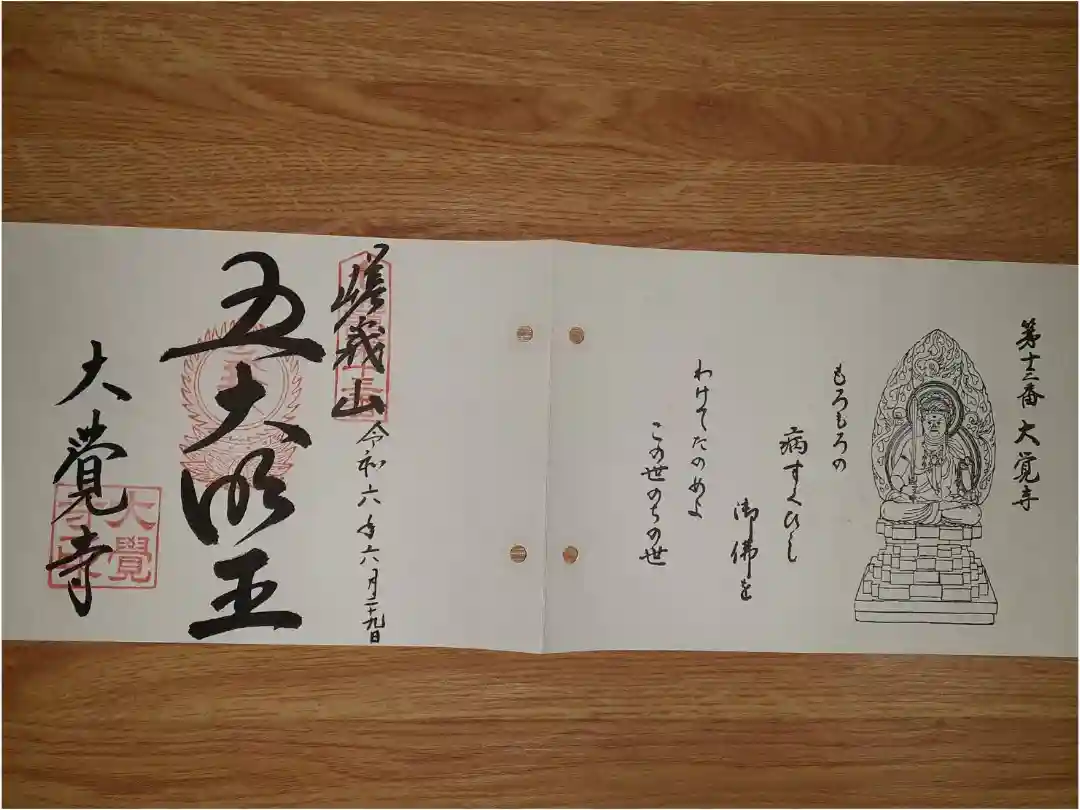 第十三番 大覚寺
もろもろの
病すくひし
御佛を
わけてたのめよ
この世のちの世
嵯峨山
令和六年六月二十九日
五大明王
大覺寺
大覺寺